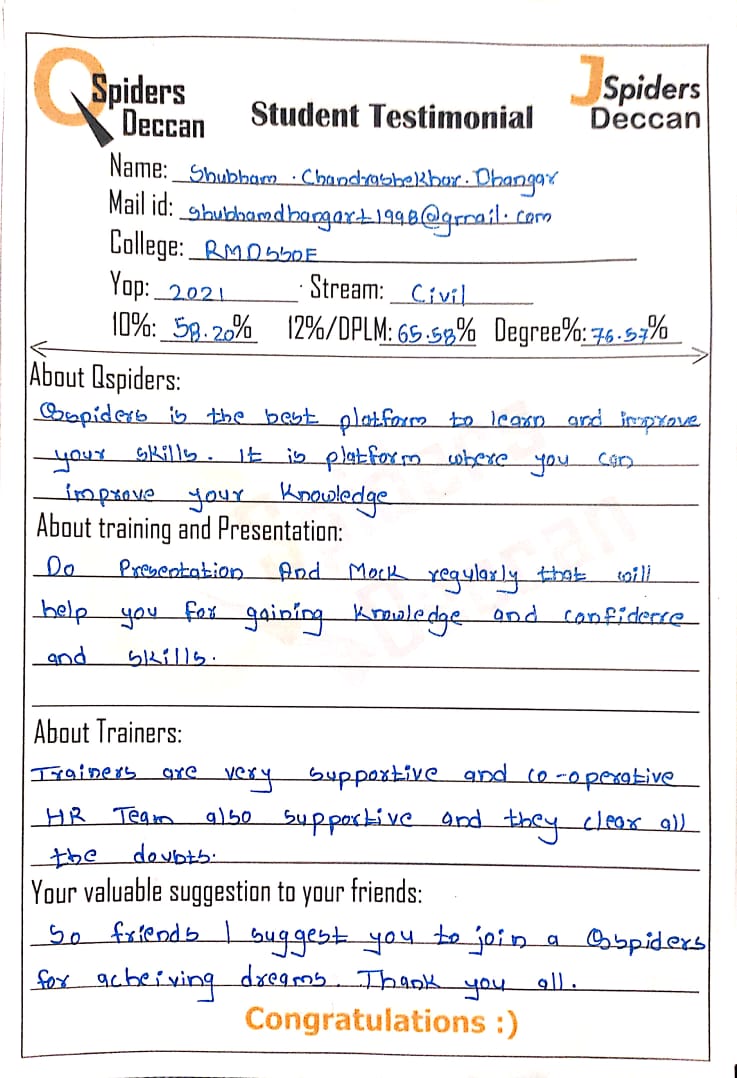 QSpiders Deccan
Student Testimonial
JSpiders Deccan
Name: Shubham . Chandrashekhar. Dhangar
Mail id: shubhamdhangar1998@gmail.com
College: RMDSSOE
Yop: 2021 Stream: Civil
10%: 58.20% 12%/DPLM: 65.58% Degree%: 76.57%
About Qspiders:
Qspiders is the best platform to learn and improve
your skills. It is platform where you can
improve your Knowledge
About training and Presentation:
Do Presentation And Mock regularly that will
help you for gaining knowledge and confidence
and skills.
About Trainers:
Trainers are very supportive and co-operative
HR Team also supportive and they clear all
the doubts.
Your valuable suggestion to your friends:
So friends I suggest you to join a Qspiders
for acheiving dreams. Thank you all.
Congratulations :)